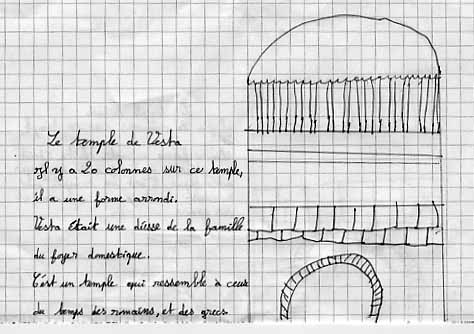 Le temple de Vesta
Il y a 20 colonnes sur ce temple,
il a une forme arrondi.
Vesta était une déesse de la famille
du foyer domestique.
C'est un temple qui ressemble à ceux
du temps des romains, et des grecs